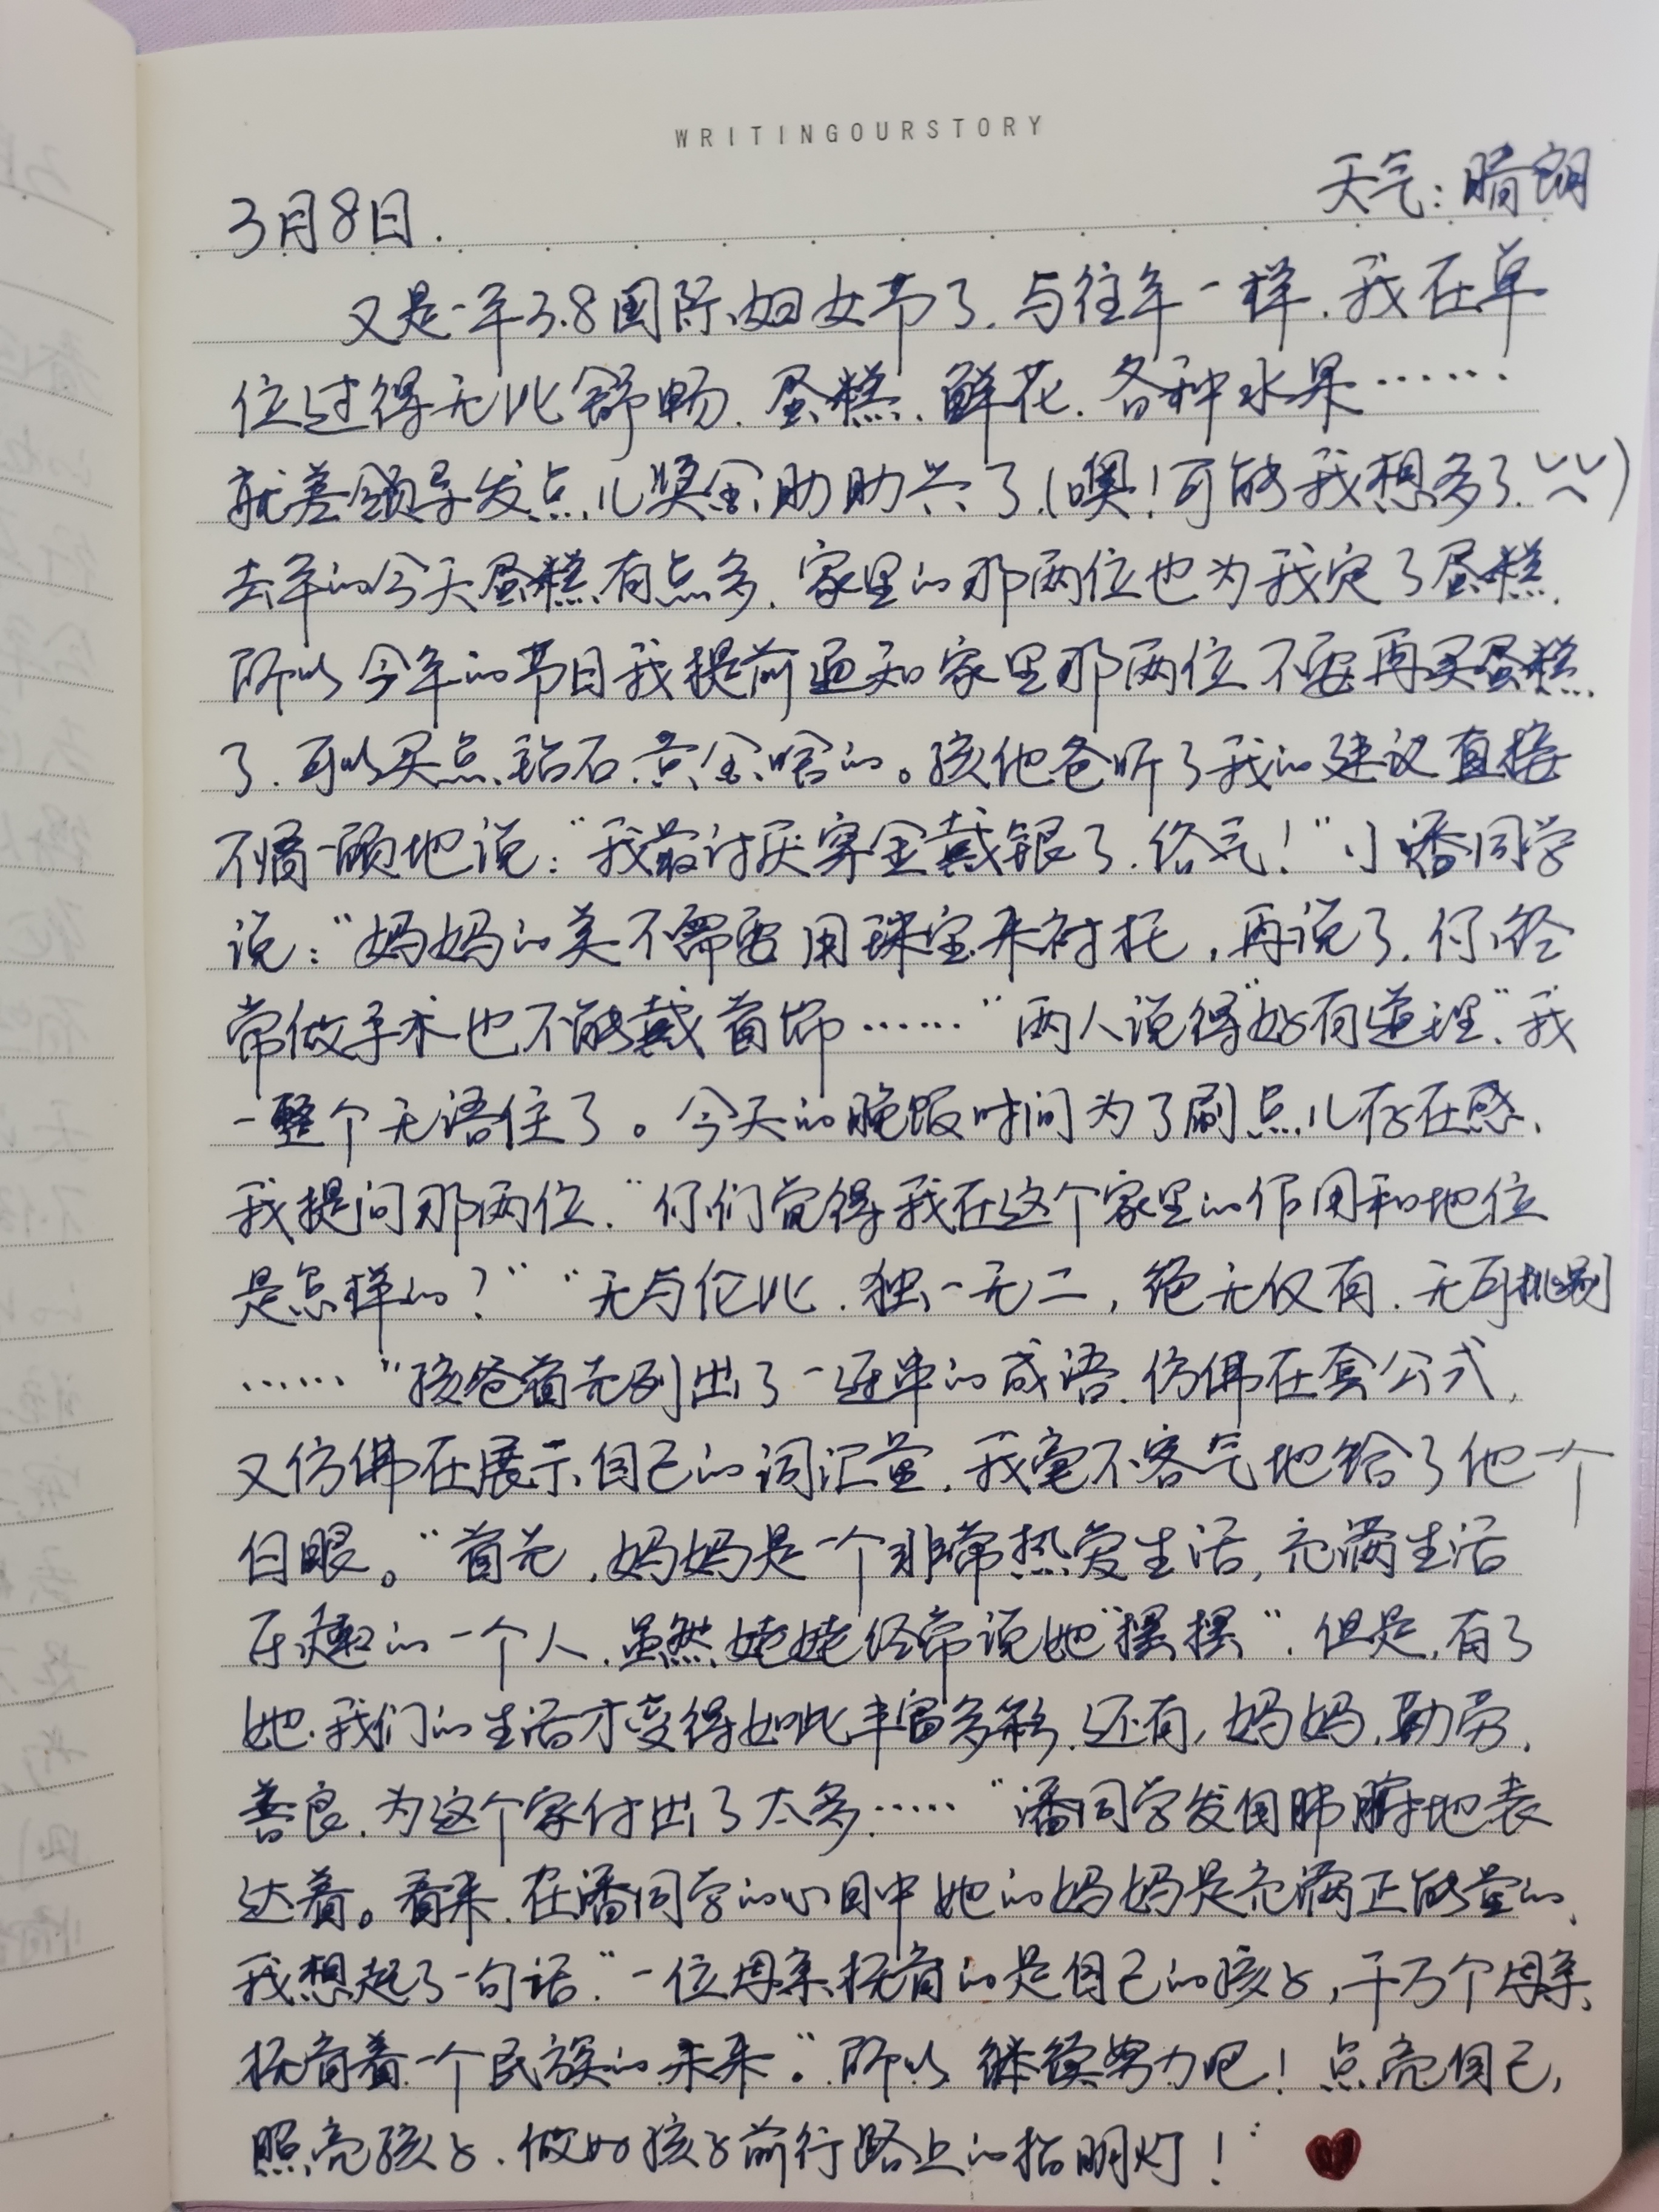 WRITINGOURSTORY
天气：晴朗
3月8日.
又是一年3.8国际妇女节了.与往年一样.我在单
位过得无比舒畅.蛋糕.鲜花.各种水果……
就差领导发点儿奖金助助兴了(噢!可能我想多了.)
去年的今天蛋糕有点多.家里的那两位也为我定了蛋糕.
所以今年的节日我提前通知家里那两位不要再买蛋糕
了.可以买点钻石.黄金啥的。孩他爸听了我的建议直接
不屑一顾地说:“我最讨厌穿金戴银了.俗气!”小潘同学
说:“妈妈的美不需要用珠宝来衬托,再说了.你经
常做手术也不能戴首饰……”两人说得“好有道理”.我
一整个无语住了。今天的晚饭时间为了刷点儿存在感.
我提问那两位.“你们觉得我在这个家里的作用和地位
是怎样的?”“无与伦比.独一无二,绝无仅有.无可挑剔
……”孩爸首先列出了一连串的成语.仿佛在套公式,
又仿佛在展示自己的词汇量.我毫不客气地给了他一个
白眼。“首先.妈妈是一个非常热爱生活,充满生活
乐趣的一个人.虽然姥姥经常说她“摆摆”.但是,有了
她.我们的生活才变得如此丰富多彩.还有,妈妈.勤劳.
善良.为这个家付出了太多……”潘同学发自肺腑地表
达着。看来.在潘同学的心目中她的妈妈是充满正能量的.
我想起了一句话“一位母亲抚育的是自己的孩子,千万个母亲
抚育着一个民族的未来”.所以继续努力吧!点亮自己,
照亮孩子.做好孩子前行路上的指明灯!